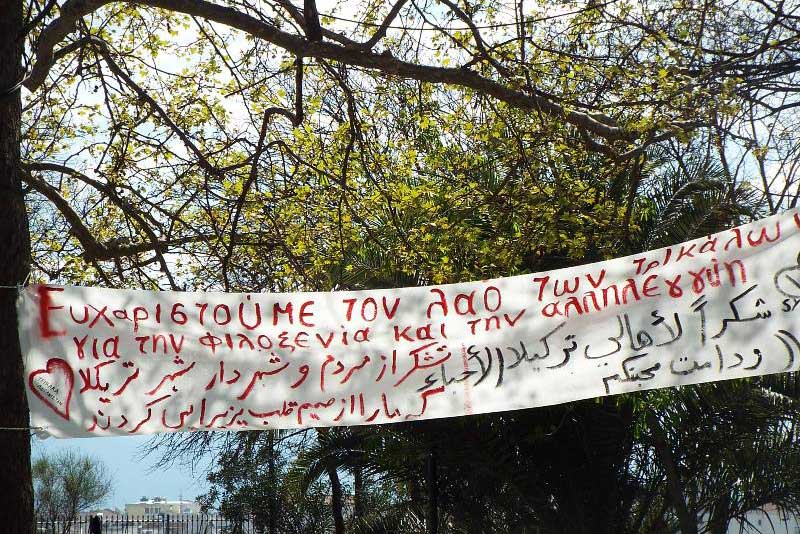 Ευχαριστούμε τον λαό των Τρικάλων
για την φιλοξενία και την αλληλέγγύη
تشکر از مردم و شهردار شهر تریکلا
که ما را از صمیم قلب پزیرایی کردند
شكراً لأهالي تركيلا الأحباء
ودامت محبتكم